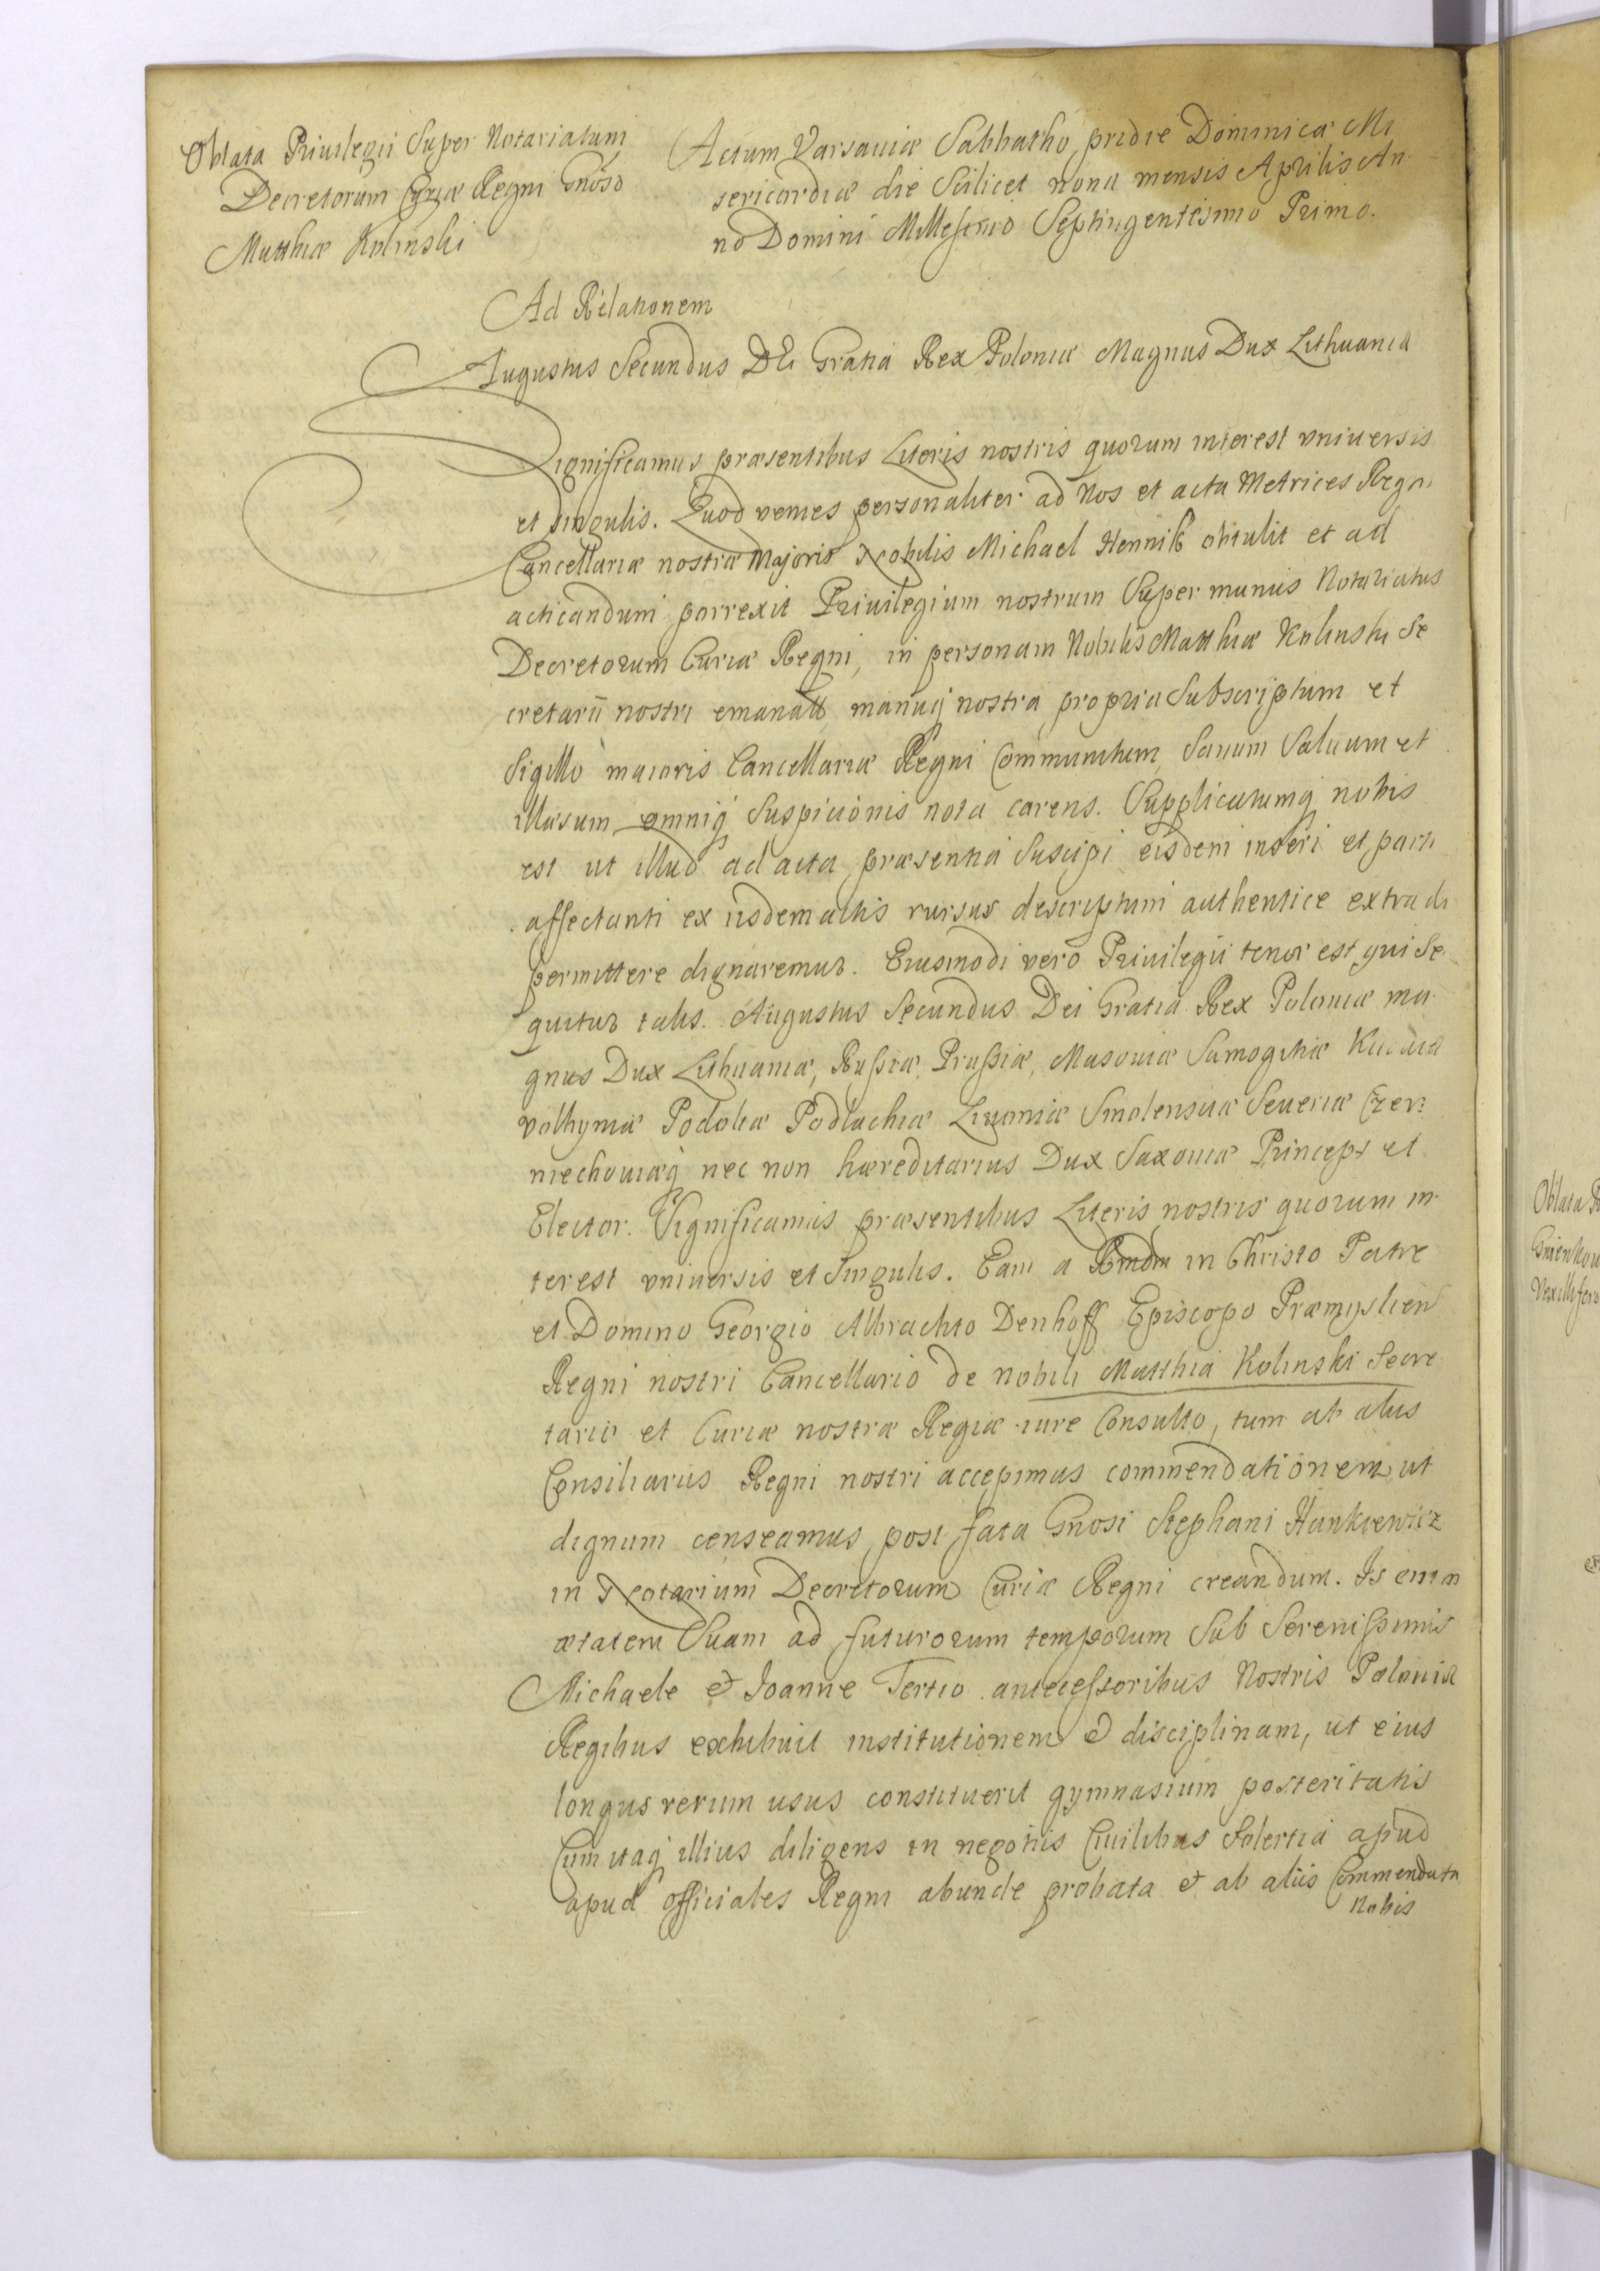 Oblata Priuilegii Super Notariatum
Decretorum Curiæ Regni Gnoso
Matthiæ Kolinski
Actum Varsauiæ Sabbatho pridie Dominicæ Mi
sericordiæ die Scilicet nona mensis Aprilis An
no Domini Millesimo Septingentesimo Primo.
Ad Relationem
Augustus Secundus DEi Gratia Rex Poloniæ Magnus Dux Lithuaniæ
Significamus præsentibus Literis nostris quorum interest vniuersis
et singulis. Quod veniens personaliter ad Nos et acta Metrices Regni
Cancellariæ nostræ Majoris Nobilis Michael Hennik obtulit et ad
acticandum porrexit Priuilegium nostrum Super munus Notariatus
Decretorum Curiæ Regni, in personam Nobilis Matthiæ Kolinski Se
cretarii nostri emanatt manuq nostra propria Subscriptum et
Sigillo maioris Cancellariæ Regni Communitum, Sanum Saluum et
illæsum omniq Suspicionis nota carens. Supplicatumq nobis
est ut illud ad acta præsentia Suscipi eisdem inseri et parti
affectanti ex iisdem actis rursus descriptum authentice extradi
permittere dignaremur. Eiusmodi vero Priuilegii tenor est qui Se
quitur talis. Augustus Secundus Dei Gratia Rex Poloniæ ma
gnus Dux Lithuaniæ, Russiæ, Prussiæ, Masouiæ Samogitiæ Kiiouiæ
volhyniæ Podoliæ Podlachiæ Liuoniæ Smolensciæ Seueriæ Czer
niechouiæq nec non hæreditarius Dux Saxoniæ Princeps et
Elector. Significamus præsentibus Literis nostris quorum in
terest vniuersis et Singulis. Eam a Rmdm in Christo Patre
et Domino Georgio Albrachto Denhoff Episcopo Præmyslien
Regni nostri Cancellario de nobili Matthia Kolinski Secre
tario et Curiæ nostræ Regiæ iure Consulto, tum ab alus
Consiliariis Regni nostri accepimus commendationem ut
dignum censeamus post fata Gnosi Stephani Hankiewicz
in Notarium Decretorum Curiæ Regni creandum. Is enim
ætatem Suam ad futurorum temporum Sub Serenissimis
Michaele & Joanne Tertio antecessoribus Nostris Poloniæ
Regibus exhibuit institutionem & disciplinam, ut eius
longus rerum usus constituerit gymnasium posteritatis
Cum itaq illius diligens in negotiis Ciuilibus Solertia apud
apud officiales Regni abunde probata & ab aliis Commendata
Nobis
Oblata